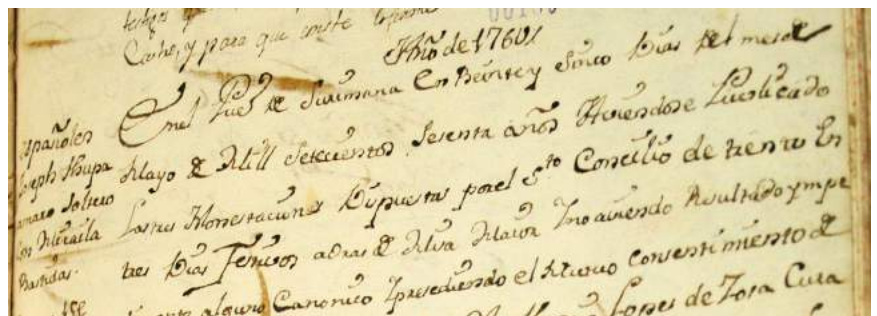 testigos
Coxho, y para que conste lo firme
Año de 1760
En el Pueº de Surimana En Beinte y Sinco Dias del mes de
Mayo de Mill Setecuentos Sesenta años Aviendose Puvlicado
Las tres Monestaciones Dispuestas por el Sto Concilio de trento En
tres Dias Festivos a oras de Misa Maior Ino aviendo Resultado ympe
alguno Canonico Ipresediendo el Mutuo Consentimiento de
Lopes de Sosa Cura
Españoles
Joseph Thupa
Amaro Soltero
Con Micaila
Bastidas.